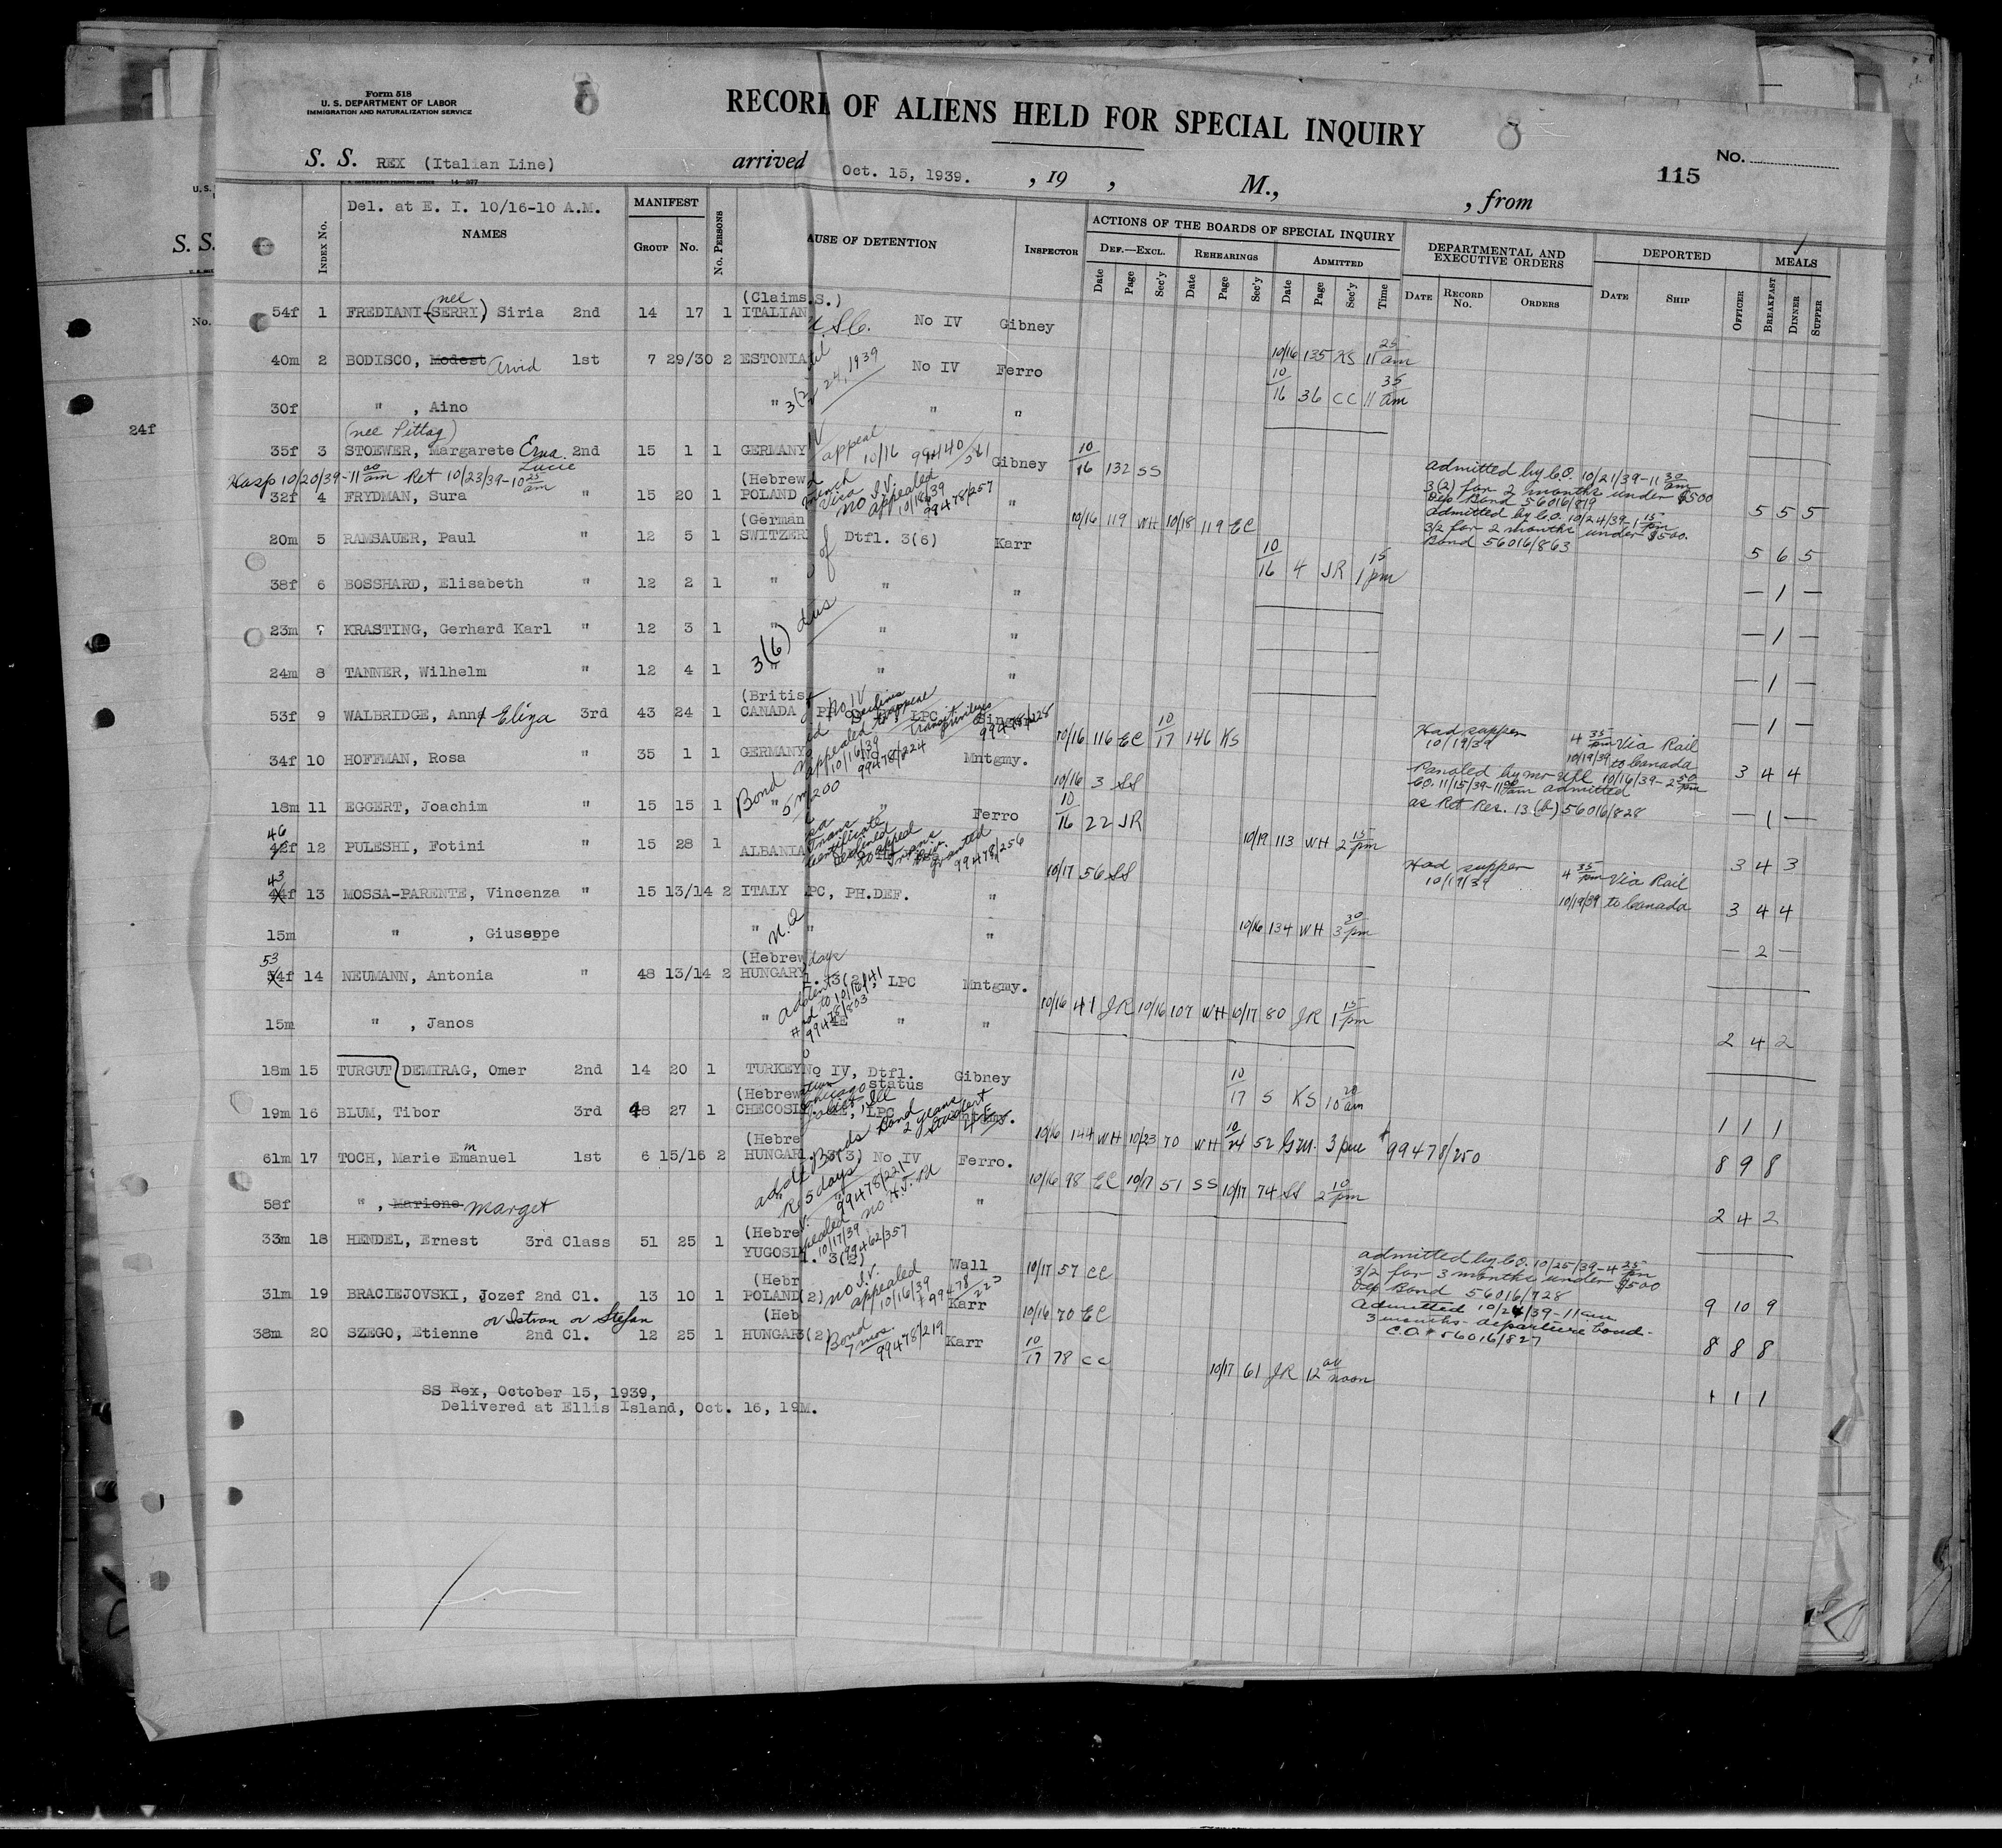 Form 518
U. S. DEPARTMENT OF LABOR
IMMIGRATION AND NATURALIZATION SERVICE
RECORD OF ALIENS HELD FOR SPECIAL INQUIRY
No.
115
S. S. REX (Italian Line) arrived Oct. 15, 1939. , 19 , M., , from
Del. at E. I. 10/16-10 A.M.
INDEX No. NAMES MANIFEST GROUP No. No. PERSONS AUSE OF DETENTION INSPECTOR
ACTIONS OF THE BOARDS OF SPECIAL INQUIRY
DEF.—EXCL. Date Page Sec'y REHEARINGS Date Page Sec'y ADMITTED Date Page Sec'y Time
DEPARTMENTAL AND EXECUTIVE ORDERS DATE RECORD No. ORDERS
DEPORTED DATE SHIP OFFICER
MEALS BREAKFAST DINNER SUPPER
S. S.
No.
24f
(Claims S.)
54f 1 FREDIANI-(nee SERRI) Siria 2nd 14 17 1 ITALIAN No IV Gibney 10/16 135 KS 11 25 am
40m 2 BODISCO, Modest Arvid 1st 7 29/30 2 ESTONIA 3(2) 24, 1939 No IV Ferro 10/16 36 CC 11 35 am
30f " , Aino " " "
(nee Pittag)
35f 3 STOEWER, Margarete Erna Lucie 2nd 15 1 1 GERMANY IV appeal 10/16 Gibney 10/16 132 SS
admitted by C.O. 10/21/39-11 30 am
3(2) for 2 months under $500
Dep Bond 56016/819
5 5 5
Hosp 10/20/39-11 00 am Ret 10/23/39-10 25 am
(Hebrew
32f 4 FRYDMAN, Sura " 15 20 1 POLAND no I.V. appealed 10/18/39 99478/257 " 10/16 119 WH 10/18 119 EC
admitted by C.O. 10/24/39-1 15 pm
3/2 for 2 months under $500.
Bond 56016/863
5 6 5
(German
20m 5 RAMSAUER, Paul " 12 5 1 SWITZER Dtfl. 3(6) Karr 10/16 4 JR 1 15 pm — 1 —
38f 6 BOSSHARD, Elisabeth " 12 2 1 " " " — 1 —
23m 7 KRASTING, Gerhard Karl " 12 3 1 " " " — 1 —
3(6)
24m 8 TANNER, Wilhelm " 12 4 1 " " " — 1 —
(Britis
53f 9 WALBRIDGE, Anne Eliza 3rd 43 24 1 CANADA no IV LPC 99478/228 10/16 116 EC 10/17 146 KS
Had supper 10/19/39 4 35 pm Via Rail 10/19/39 to Canada
3 4 4
34f 10 HOFFMAN, Rosa " 35 1 1 GERMANY appealed 10/16/39 99478/224 Mntgmy. 10/16 3 SS
Paroled by 10/16/39-2 50 pm
C.O. 11/15/39-11 am admitted
as Ret Res. 13(b) 56016/828
— 1 —
18m 11 EGGERT, Joachim " 15 15 1 " Bond 5 m/200 " Ferro 10/16 22 JR 10/19 113 WH 2 15 pm 3 4 3
46 42f 12 PULESHI, Fotini " 15 28 1 ALBANIA granted 99478/256 10/17 56 SS
Had supper 10/19/39 4 35 pm Via Rail 10/19/39 to Canada
3 4 4
43 44f 13 MOSSA-PARENTE, Vincenza " 15 13/14 2 ITALY PC, PH.DEF. " 10/16 134 WH 3 30 pm — 2 —
15m " , Giuseppe " " "
(Hebrew days
53 54f 14 NEUMANN, Antonia " 48 13/14 2 HUNGARY 1. 3(2) LPC Mntgmy. 10/16 41 JR 10/16 107 WH 10/17 80 JR 1 15 pm 2 4 2
15m " , Janos " 99478/803 " "
18m 15 TURGUT DEMIRAG, Omer 2nd 14 20 1 TURKEY No IV, Dtfl. status Gibney 10/17 5 KS 10 20 am 1 1 1
(Hebrew
19m 16 BLUM, Tibor 3rd 48 27 1 CHECOSL LPC 10/16 144 WH 10/23 70 WH 10/24 52 GM. 3 pm #99478/250 8 9 8
(Hebre
61m 17 TOCH, Marie Emmanuel 1st 6 15/16 2 HUNGAR 3(3) No IV Ferro. 10/16 98 EC 10/17 51 SS 10/17 74 SS 2 10 pm 2 4 2
58f " , Marione Marget 5 days 99478/221 "
(Hebre
33m 18 HENDEL, Ernest 3rd Class 51 25 1 YUGOSL 1. 3(2) 10/17/39 99462/357 Wall 10/17 57 CC
admitted by C.O. 10/25/39-4 25 pm
3/2 for 3 months under $500
Dep Bond 56016/728
9 10 9
(Hebr
31m 19 BRACIEJOVSKI, Jozef 2nd Cl. 13 10 1 POLAND (2) no I.V. appealed 10/16/39 99478/223 Karr 10/16 70 EC
Admitted 10/24/39-11 am
3 months departure bond-
C.O.# 56016/827
8 8 8
or Istvan or Stefan
(Heb
38m 20 SZEGO, Etienne 2nd Cl. 12 25 1 HUNGAR 3(2) Bond 7 mos. 99478/219 Karr 10/17 78 CC 10/17 61 JR 12 00 noon 1 1 1
SS Rex, October 15, 1939,
Delivered at Ellis Island, Oct. 16, 19M.